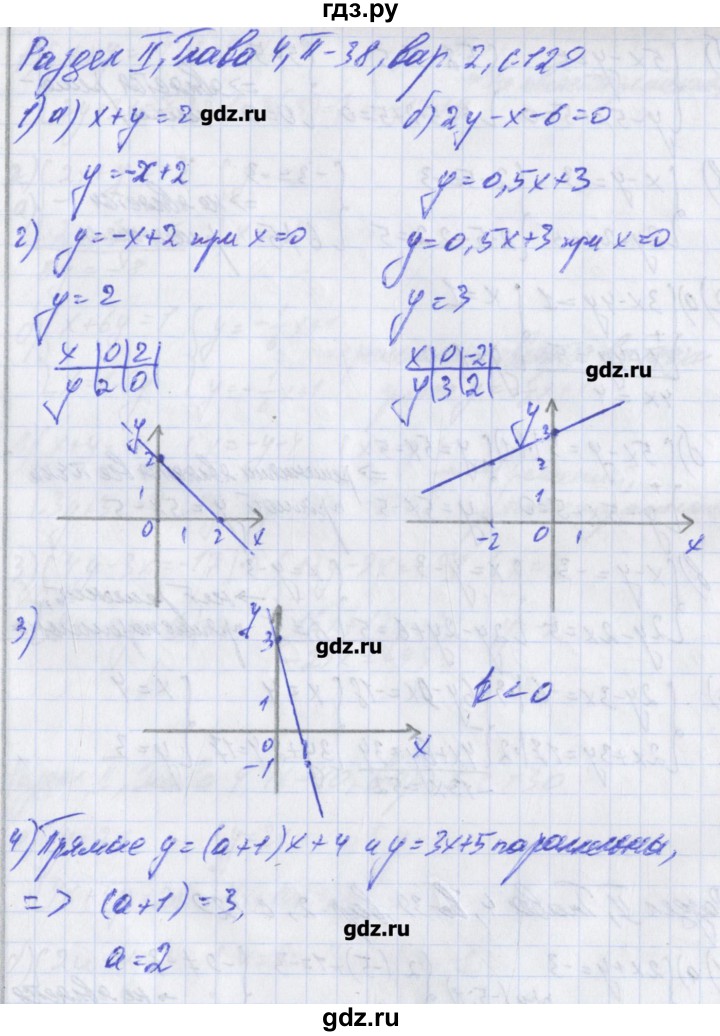 гдз.ру
Раздел II, Глава 4, П-38, вар. 2, с.129
1) а) x+y=2
gdz.ru
б) 2y-x-6=0
y=-x+2
y=0,5x+3
2) y=-x+2 при x=0
y=0,5x+3 при x=0
y=2
y=3
x|0|2|
y|2|0|
x|0|-2|
y|3|2|
gdz.ru
y
2
1
0 1 2 x
y
3
2
1
-2 0 1 x
3)
y
3
gdz.ru
1
k<0
0 1 x
-1
4) Прямые y=(a+1)x+4 и y=3x+5 параллельны,
=> (a+1)=3,
gdz.ru
a=2
gdz.ru